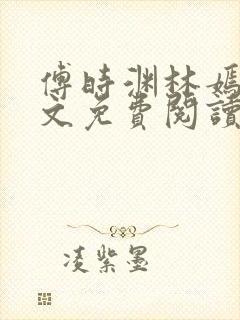 傅時渊林嫣
文免費閱讀
凌紫墨